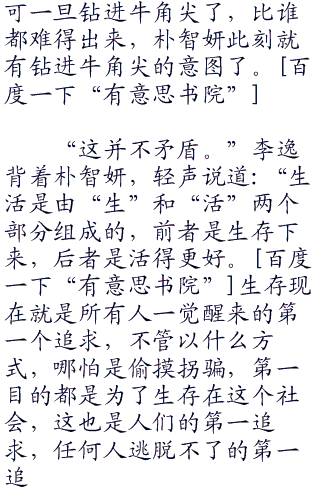 可一旦钻进牛角尖了，比谁
都难得出来，朴智妍此刻就
有钻进牛角尖的意图了。[百
度一下“有意思书院”]
“这并不矛盾。”李逸
背着朴智妍，轻声说道：“生
活是由“生”和“活”两个
部分组成的，前者是生存下
来，后者是活得更好。[百度
一下“有意思书院”]生存现
在就是所有人一觉醒来的第
一个追求，不管以什么方
式，哪怕是偷摸拐骗，第一
目的都是为了生存在这个社
会，这也是人们的第一追
求，任何人逃脱不了的第一
追